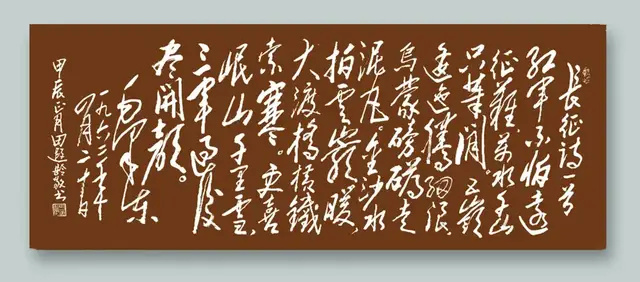 长征诗一首
红军不怕远
征难，万水千山
只等闲。五嶺
逶迤腾细浪，
烏蒙磅礴走
泥丸。金沙水
拍雲巖暖，
大渡橋横鐵
索寒。更喜
岷山千里雪，
三军过后
尽开颜。
毛泽东
一九六二年
四月二十日
甲辰正月田龄敬书